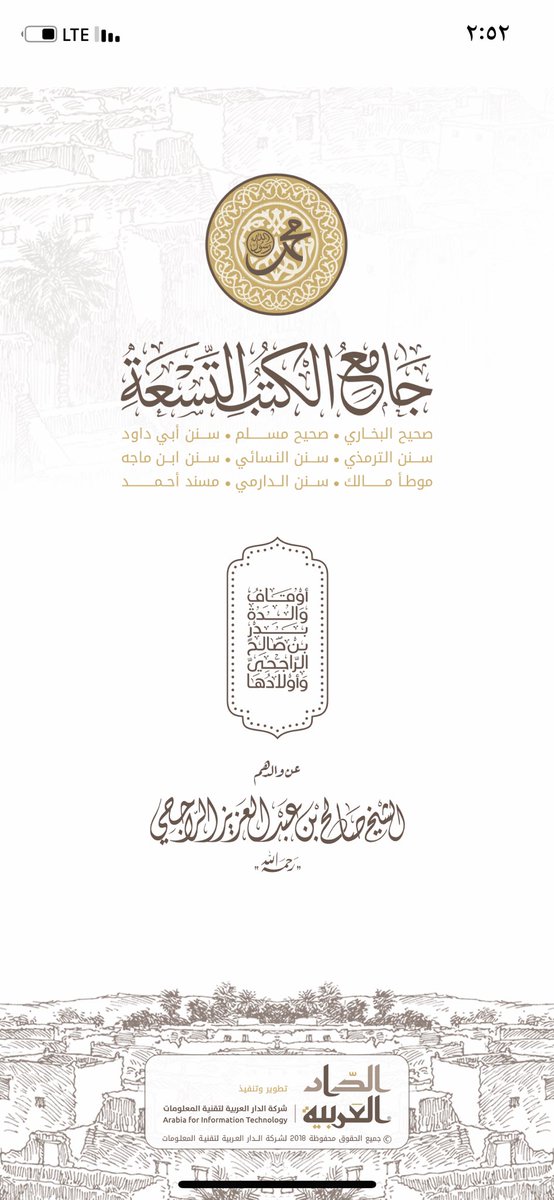 LTE ٢:٥٢
محمد
رسول الله
جَامِعُ الكُتُبِ التِّسْعَةِ
صحيح البخاري • صحيح مسلم • سنن أبي داود
سنن الترمذي • سنن النسائي • سنن ابن ماجه
موطأ مالك • سنن الدارمي • مسند أحمد
أوقاف
والدة
بدر
بن صالح
الراجحي
وأولادها
عن والدهم
الشيخ صالح بن عبد العزيز الراجحي
"رحمه الله"
الدار
العربية
تطوير وتنفيذ
شركة الدار العربية لتقنية المعلومات
Arabia for Information Technology
© جميع الحقوق محفوظة 2018 لشركة الدار العربية لتقنية المعلومات